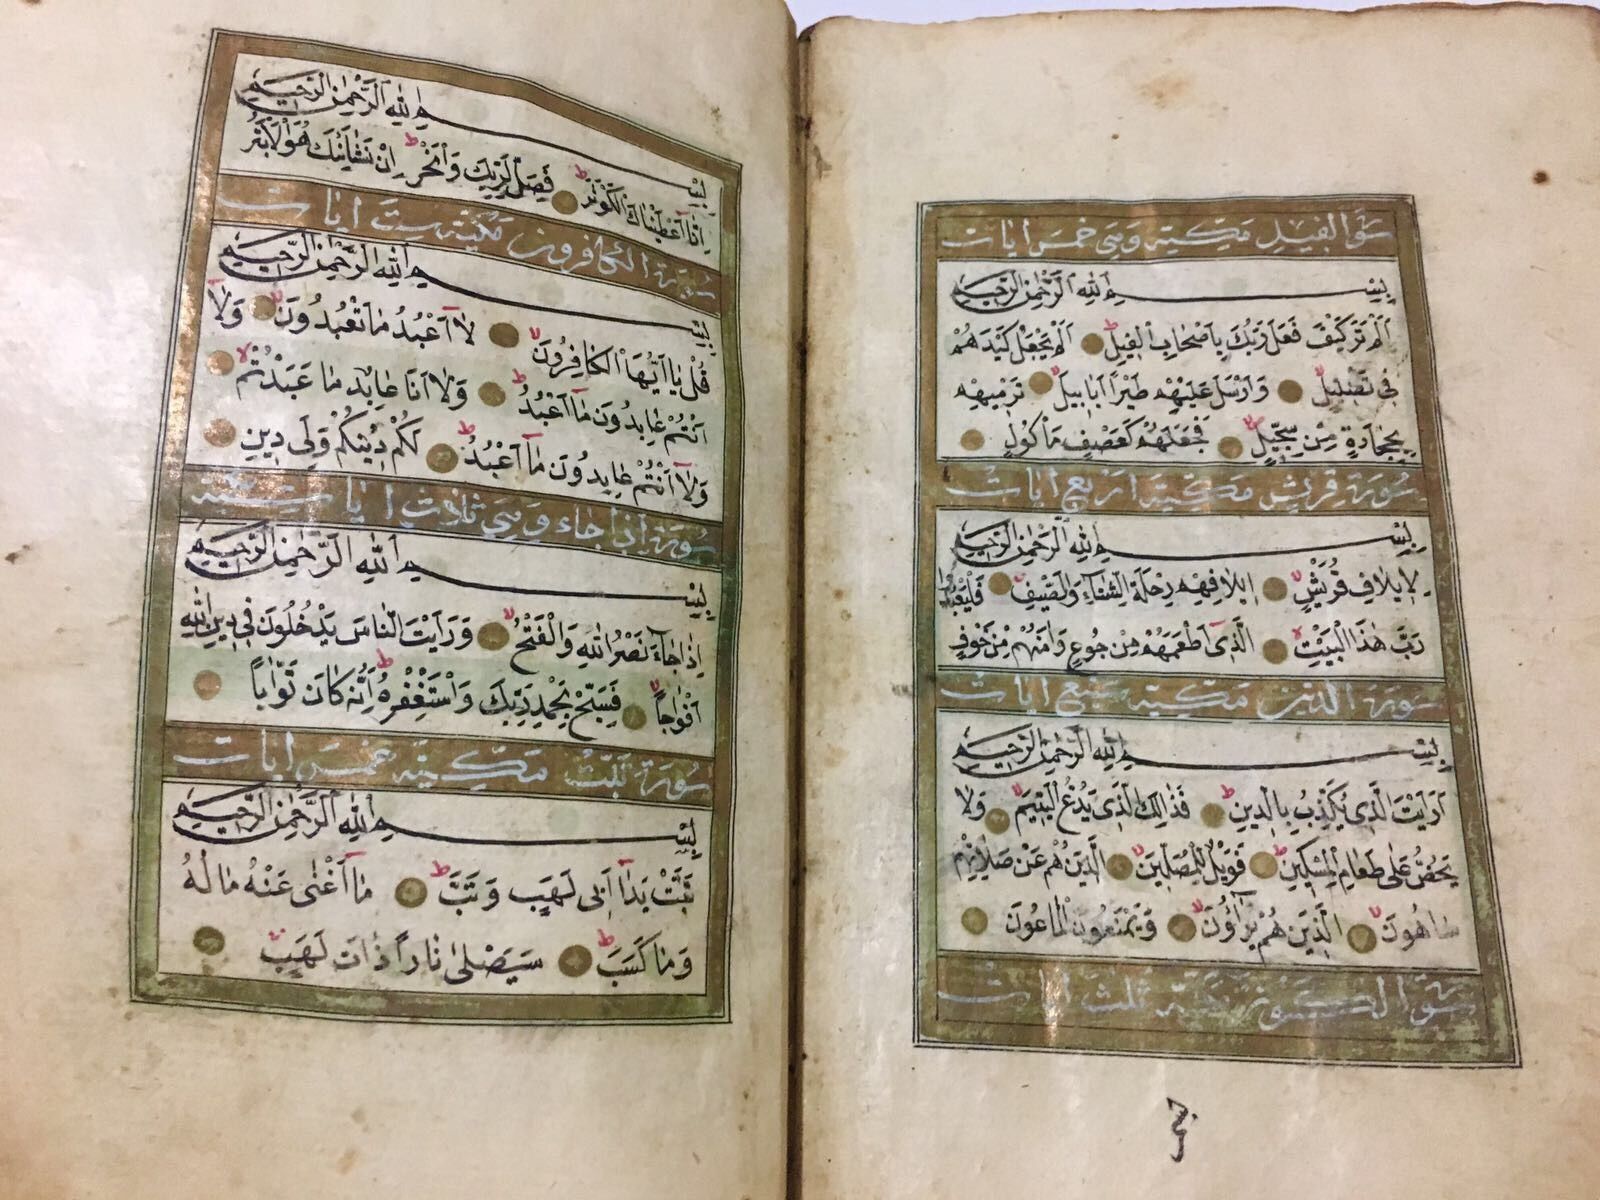 سورة الفيل مكية وهي خمس ايات
بِسْمِ اللهِ الرَّحْمٰنِ الرَّحِيمِ
اَلَمْ تَرَ كَيْفَ فَعَلَ رَبُّكَ بِاَصْحَابِ الْفِيلِ اَلَمْ يَجْعَلْ كَيْدَهُمْ
فِي تَضْلِيلٍ وَاَرْسَلَ عَلَيْهِمْ طَيْرًا اَبَابِيلَ تَرْمِيهِمْ
بِحِجَارَةٍ مِنْ سِجِّيلٍ فَجَعَلَهُمْ كَعَصْفٍ مَأْكُولٍ
سورة قريش مكية اربع ايات
بِسْمِ اللهِ الرَّحْمٰنِ الرَّحِيمِ
لِاِيلَافِ قُرَيْشٍ اِيلَافِهِمْ رِحْلَةَ الشِّتَاءِ وَالصَّيْفِ فَلْيَعْبُدُوا
رَبَّ هٰذَا الْبَيْتِ الَّذِي اَطْعَمَهُمْ مِنْ جُوعٍ وَاٰمَنَهُمْ مِنْ خَوْفٍ
سورة الدين مكية سبع ايات
بِسْمِ اللهِ الرَّحْمٰنِ الرَّحِيمِ
اَرَاَيْتَ الَّذِي يُكَذِّبُ بِالدِّينِ فَذٰلِكَ الَّذِي يَدُعُّ الْيَتِيمَ وَلَا
يَحُضُّ عَلٰى طَعَامِ الْمِسْكِينِ فَوَيْلٌ لِلْمُصَلِّينَ الَّذِينَ هُمْ عَنْ صَلَاتِهِمْ
سَاهُونَ الَّذِينَ هُمْ يُرَاؤُنَ وَيَمْنَعُونَ الْمَاعُونَ
سورة الكوثر مكية ثلث ايات
بِسْمِ اللهِ الرَّحْمٰنِ الرَّحِيمِ
اِنَّا اَعْطَيْنَاكَ الْكَوْثَرَ فَصَلِّ لِرَبِّكَ وَانْحَرْ اِنَّ شَانِئَكَ هُوَ الْاَبْتَرُ
سورة الكافرون مكية ست ايات
بِسْمِ اللهِ الرَّحْمٰنِ الرَّحِيمِ
قُلْ يَا اَيُّهَا الْكَافِرُونَ لَا اَعْبُدُ مَا تَعْبُدُونَ وَلَا
اَنْتُمْ عَابِدُونَ مَا اَعْبُدُ وَلَا اَنَا عَابِدٌ مَا عَبَدْتُمْ
وَلَا اَنْتُمْ عَابِدُونَ مَا اَعْبُدُ لَكُمْ دِينُكُمْ وَلِيَ دِينِ
سورة اذا جاء وهي ثلاث ايات
بِسْمِ اللهِ الرَّحْمٰنِ الرَّحِيمِ
اِذَا جَاءَ نَصْرُ اللهِ وَالْفَتْحُ وَرَاَيْتَ النَّاسَ يَدْخُلُونَ فِي دِينِ اللهِ
اَفْوَاجًا فَسَبِّحْ بِحَمْدِ رَبِّكَ وَاسْتَغْفِرْهُ اِنَّهُ كَانَ تَوَّابًا
سورة تبت مكية خمس ايات
بِسْمِ اللهِ الرَّحْمٰنِ الرَّحِيمِ
تَبَّتْ يَدَا اَبِي لَهَبٍ وَتَبَّ مَا اَغْنٰى عَنْهُ مَالُهُ
وَمَا كَسَبَ سَيَصْلٰى نَارًا ذَاتَ لَهَبٍ